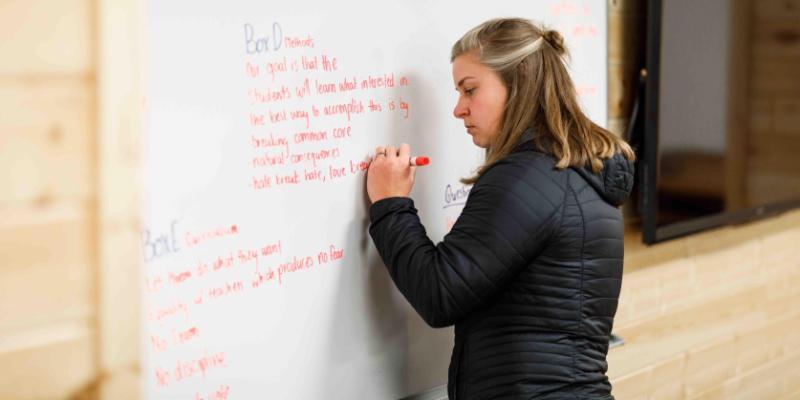 Box D Methods
Our goal is that the
Students will learn what interested in
the best way to accomplish this is by
breaking common core
-natural consequences
-hate breeds hate, love bre
Quest
Box E Curriculum
Let them do what they want!
Equality w/ teachers which produces no fear
No Exams
No discipline